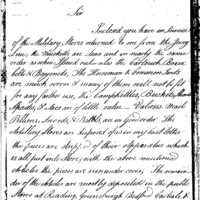 Sir
Inclosed you have an Invoice
of the Military Stores returned to me from the Jersey
Line, the Musketts are clean and in nearly the same
order as when Issued out also the Cartouch Boxes
Belts & Bayonets, The Horseman & Common Tents
are much worn & many of them will not be fit
for any further use, the Camp Kettles, Buckets, Hand
Spades, & Axes are of little value – Valises, Mail
Pillions, Swords, & Belts, are in good order The
Artillery Stores are disposed of as in my last letter
the pieces are of their apparatus which
is all put into Store, with the above mentioned
the pieces are remounted over; The remain-
der of the are mostly deposited in the public
Stores at Reading, Greensburgh Bedford Carlisle &